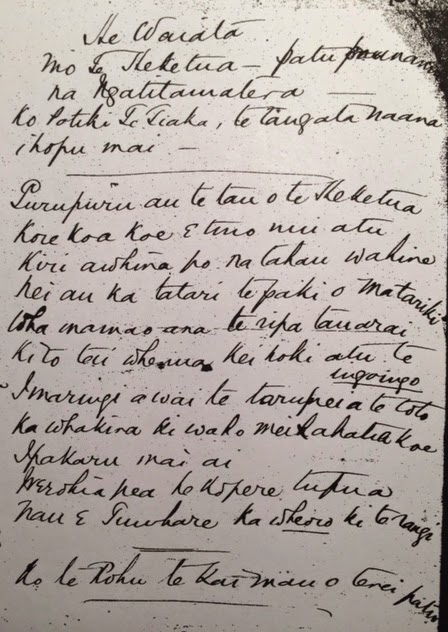 He Waiata
mo Te Heketua – patu pounamu
na Ngatitamatera —
Ko Potiki Te Tiaka, te tangata naana
i hopu mai —
Purupuru au te tau o te Heketua
Kore koa koe E tino nui atu
Kiri awhina po na takau wahine
Kei au ka tatari te paki o Matariki
Wha mamao ana te ripa tauarai
Ki to tou whenua kei hoki atu te
ngoingo
I maringi a wai te tarupeia te toto
Ka whakina ki waho mei kahatia koe
I pakaru mai ai
Werohia pea he kopere tupua
Nau E Tuwhare ka wheoro ki te rangi
Ko te Rohu te Kai mau o tenei patu